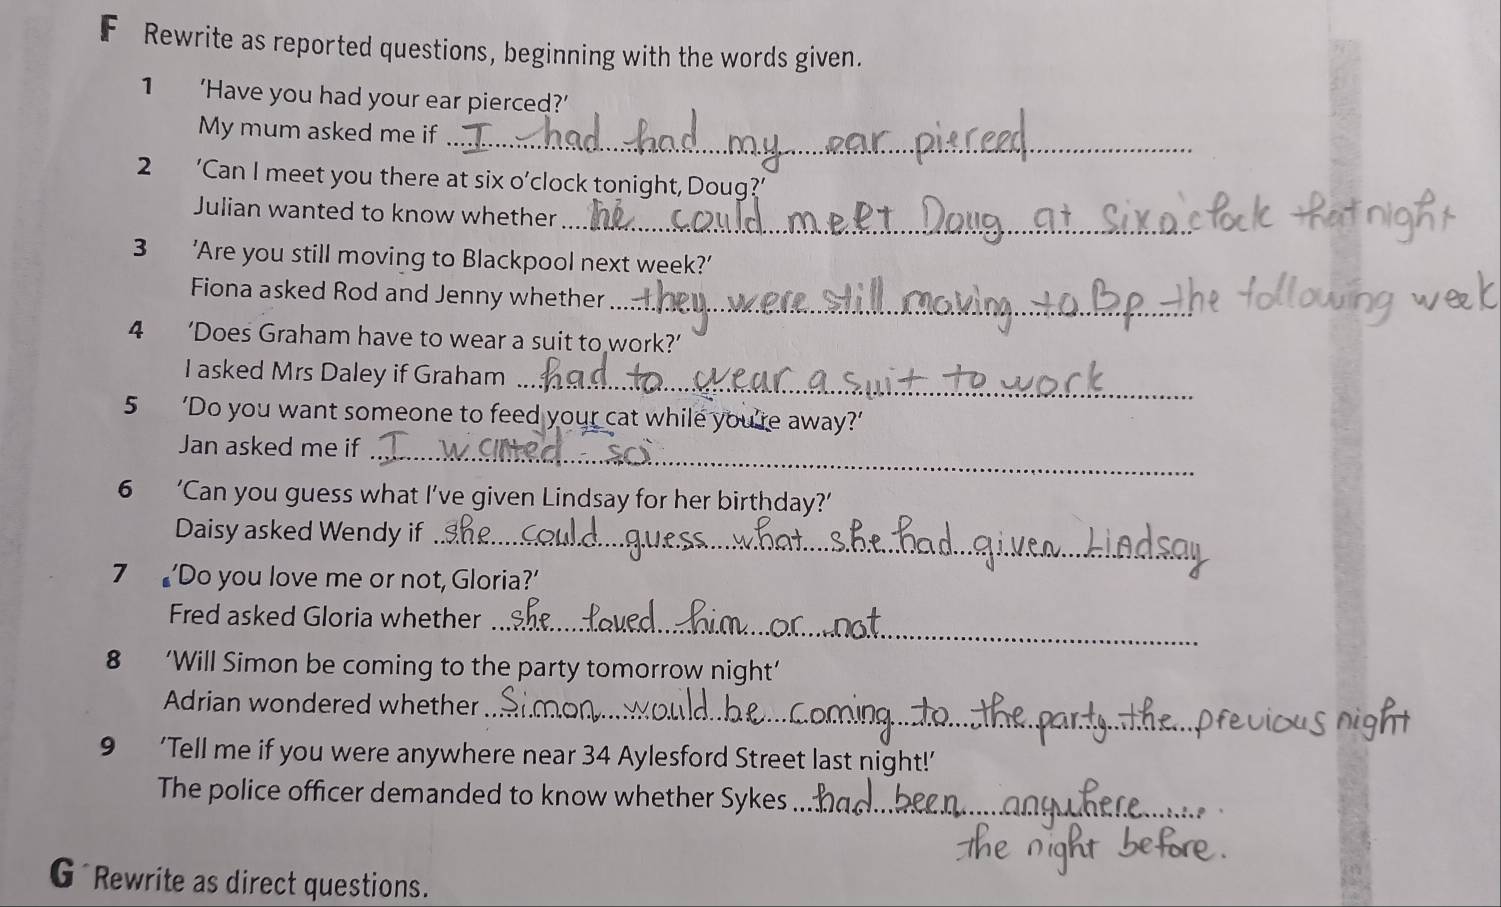 F Rewrite as reported questions, beginning with the words given.
1 'Have you had your ear pierced?'
My mum asked me if I had had my ear pierced
2 'Can I meet you there at six o'clock tonight, Doug?'
Julian wanted to know whether he could meet Doug at six o'clock that night
3 'Are you still moving to Blackpool next week?'
Fiona asked Rod and Jenny whether they were still moving to Bp the following week
4 'Does Graham have to wear a suit to work?'
I asked Mrs Daley if Graham had to wear a suit to work
5 'Do you want someone to feed your cat while you're away?'
Jan asked me if I wanted so
6 'Can you guess what I've given Lindsay for her birthday?'
Daisy asked Wendy if she could guess what she had given Lindsay
7 'Do you love me or not, Gloria?'
Fred asked Gloria whether she loved him or not
8 'Will Simon be coming to the party tomorrow night'
Adrian wondered whether Simon would be coming to the party the previous night
9 'Tell me if you were anywhere near 34 Aylesford Street last night!'
The police officer demanded to know whether Sykes had been anywhere.....
the night before.
G Rewrite as direct questions.